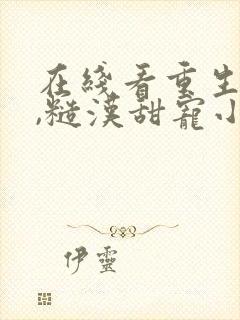 在线看重生
,糙汉甜宠小
伊灵